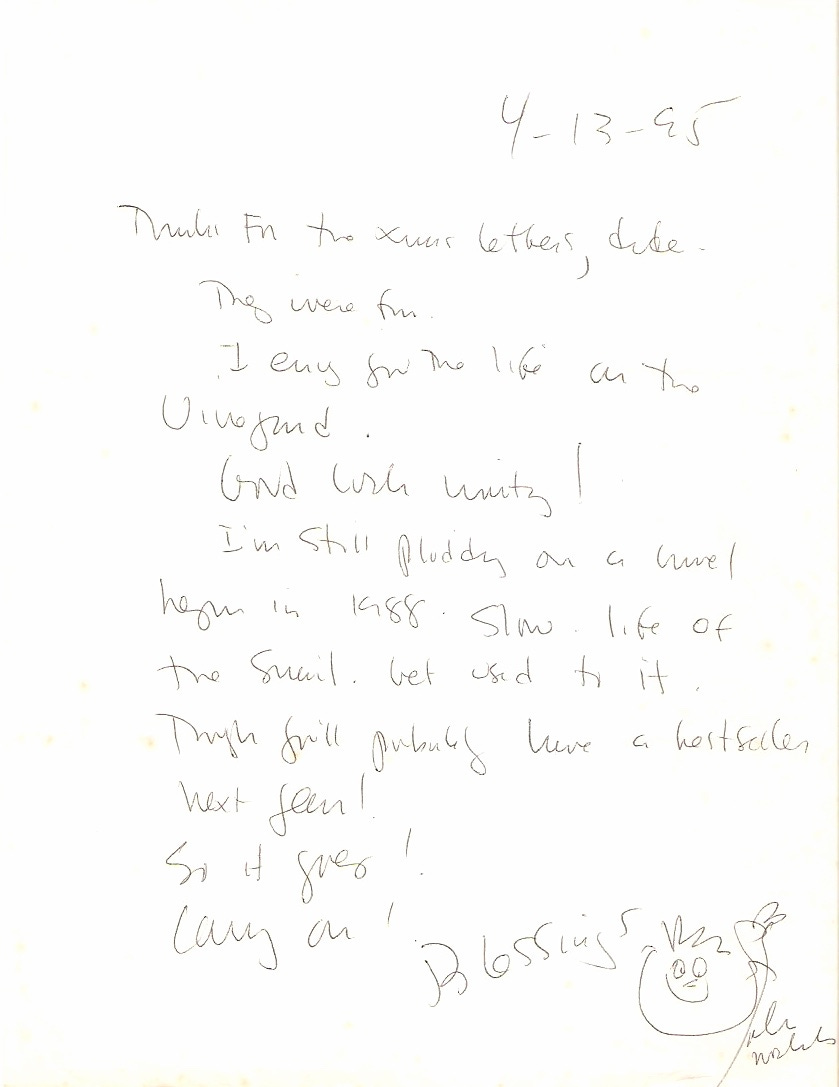 4-13-95
Thanks For the xmas letters, dude.
They were fun.
I envy you the life on the
Vineyard.
Good luck writing!
I'm still plodding on a novel
begun in 1988. Slow. life of
the Snail. Get used to it.
Though you'll probably have a bestseller
next year!
So it goes!
Carry on!
Blessings
John
Nichols